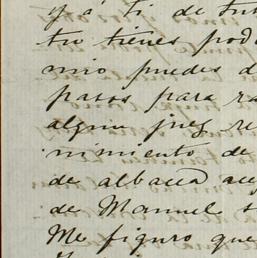 y á ti de tus
tro tienes pod
mio puedes d
pasos para ra
algun juez re
nimiento de
de albacea
de Manuel s
Me figuro que